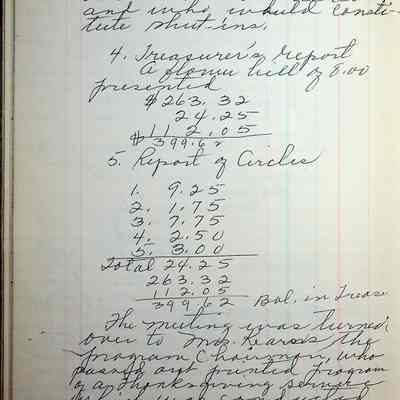 and who would consti-
tute shut-ins.
4. Treasurer's report
A flower bill of 8.00
presented
$263.32
24.25
$112.05
399.62
5. Report of Circles
1. 9.25
2. 1.75
3. 7.75
4. 2.50
5. 3.00
Total 24.25
263.32
112.05
399.62 Bal. in Treas
The meeting was turned
over to Mrs. the
program Chairman, who
passed out printed program
of a Thanksgiving service
which was conducted